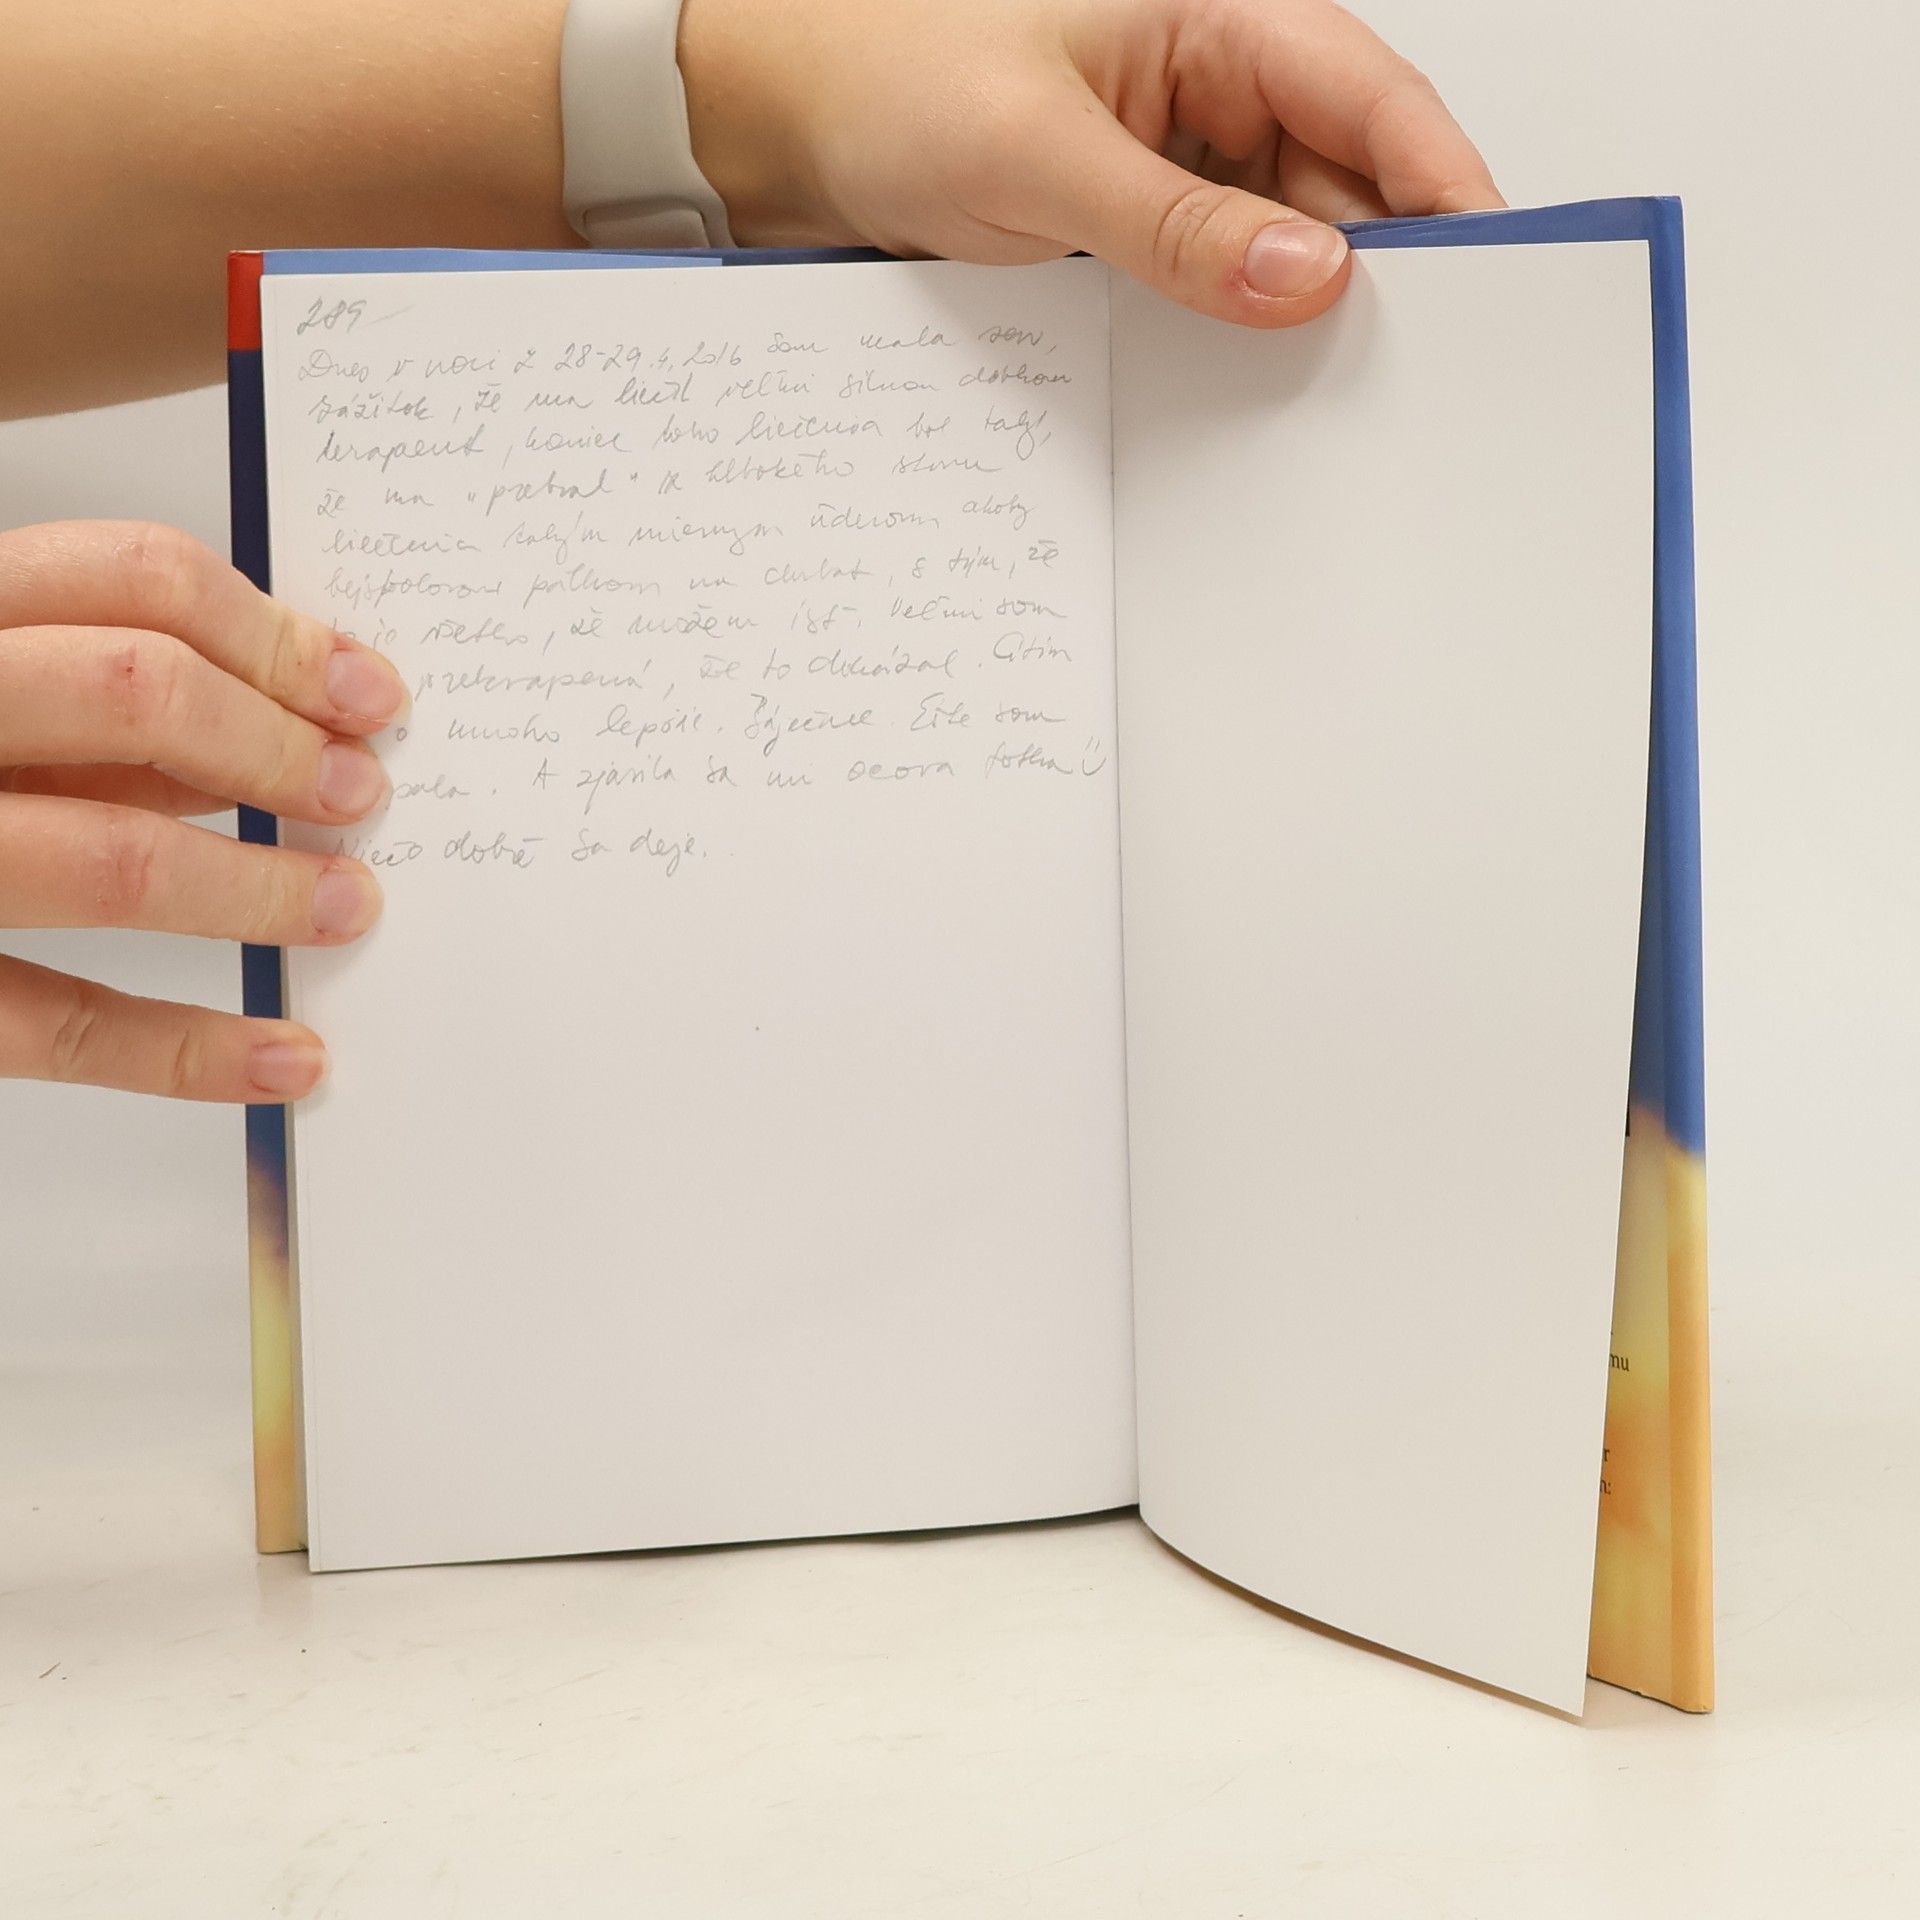 289
Dnes v noci z 28-29.4.2016 som mala sen,
zážitok, že ma liečil veľmi silnou
terapeut, koniec toho liečenia bol taký,
že ma "prebral" z hlbokého stavu
liečenia takým miernym úderom akoby
bejzbolovou palkou na chrbát, s tým, že
je všetko, že môžem ísť. Veľmi som
prekvapená, že to dokázal. Cítim
o mnoho lepšie. Ešte som
A zjavila sa mi ocova fotka
Niečo dobré sa deje.
mu
r
: